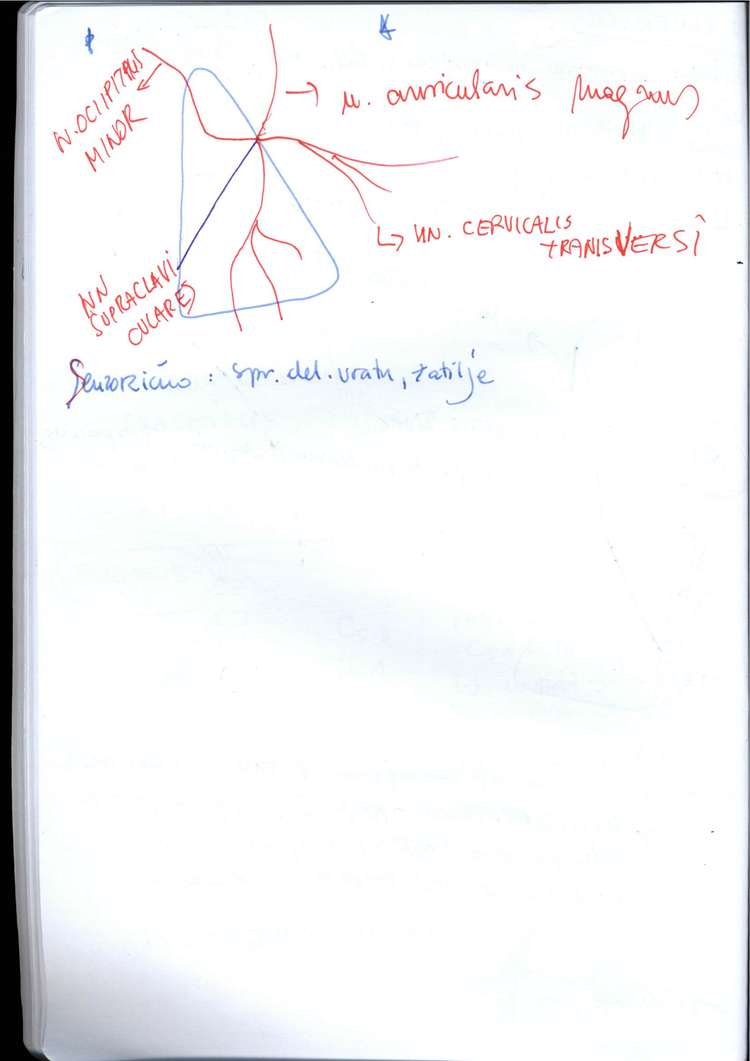 N. OCIIPITALIS
MINOR
n. auricularis magnus
NN. CERVICALIS
TRANSVERSI
NN
SUPRACLAVI
CULARES
Senzorično : spr. del. vratu, zatilje